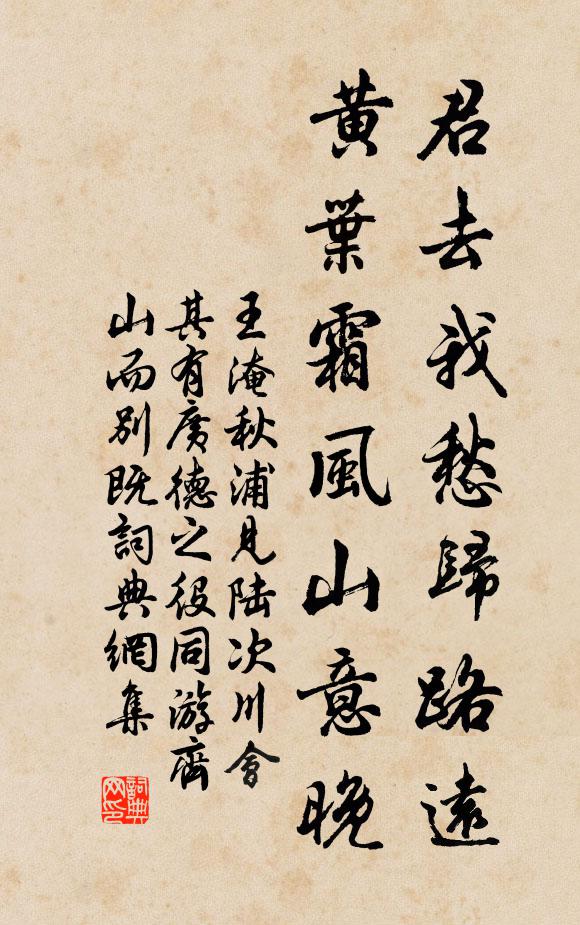 君去我愁歸路遠
黃葉霜風山意晚
王淹秋浦見陆次川會
其有廣德之役同游齊
山而別既詞典網集
詞典
网印